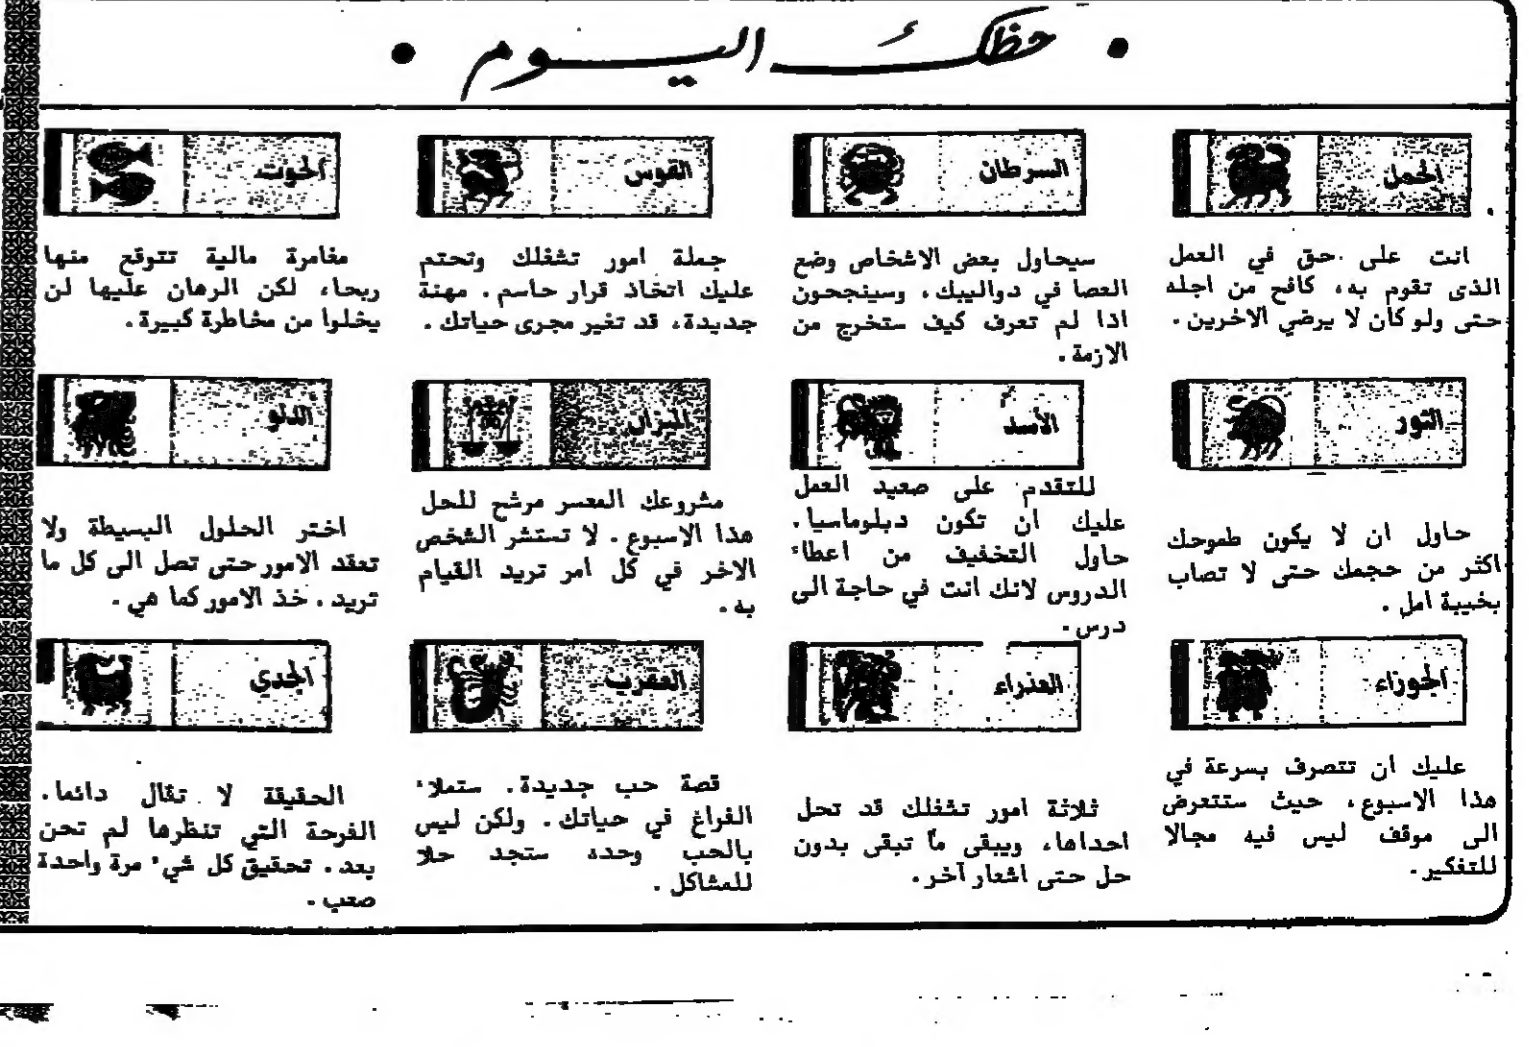 حظك اليوم
الحمل
انت على حق في العمل
الذى تقوم به، كافح من اجله
حتى ولو كان لا يرضي الاخرين.
الثور
حاول ان لا يكون طموحك
اكثر من حجمك حتى لا تصاب
بخيبة امل.
الجوزاء
عليك ان تتصرف بسرعة في
هذا الاسبوع، حيث ستتعرض
الى موقف ليس فيه مجالا
للتفكير.
السرطان
سيحاول بعض الاشخاص وضع
العصا في دواليبك، وسينجحون
اذا لم تعرف كيف ستخرج من
الازمة.
الأسد
للتقدم على صعيد العمل
عليك ان تكون دبلوماسيا.
حاول التخفيف من اعطاء
الدروس لانك انت في حاجة الى
درس.
العذراء
ثلاثة امور تشغلك قد تحل
احداها، ويبقى ما تبقى بدون
حل حتى اشعار آخر.
القوس
جملة امور تشغلك وتحتم
عليك اتخاذ قرار حاسم. مهنة
جديدة، قد تغير مجرى حياتك.
الميزان
مشروعك المعسر مرشح للحل
هذا الاسبوع. لا تستشر الشخص
الاخر في كل امر تريد القيام
به.
العقرب
قصة حب جديدة. ستملاء
الفراغ في حياتك. ولكن ليس
بالحب وحده ستجد حلا
للمشاكل.
الحوت
مغامرة مالية تتوقع منها
ربحا، لكن الرهان عليها لن
يخلوا من مخاطرة كبيرة.
الدلو
اختر الحلول البسيطة ولا
تعقد الامور حتى تصل الى كل ما
تريد. خذ الامور كما هي.
الجدي
الحقيقة لا تقال دائما.
الفرحة التي تنظرها لم تحن
بعد. تحقيق كل شيء مرة واحدة
صعب.